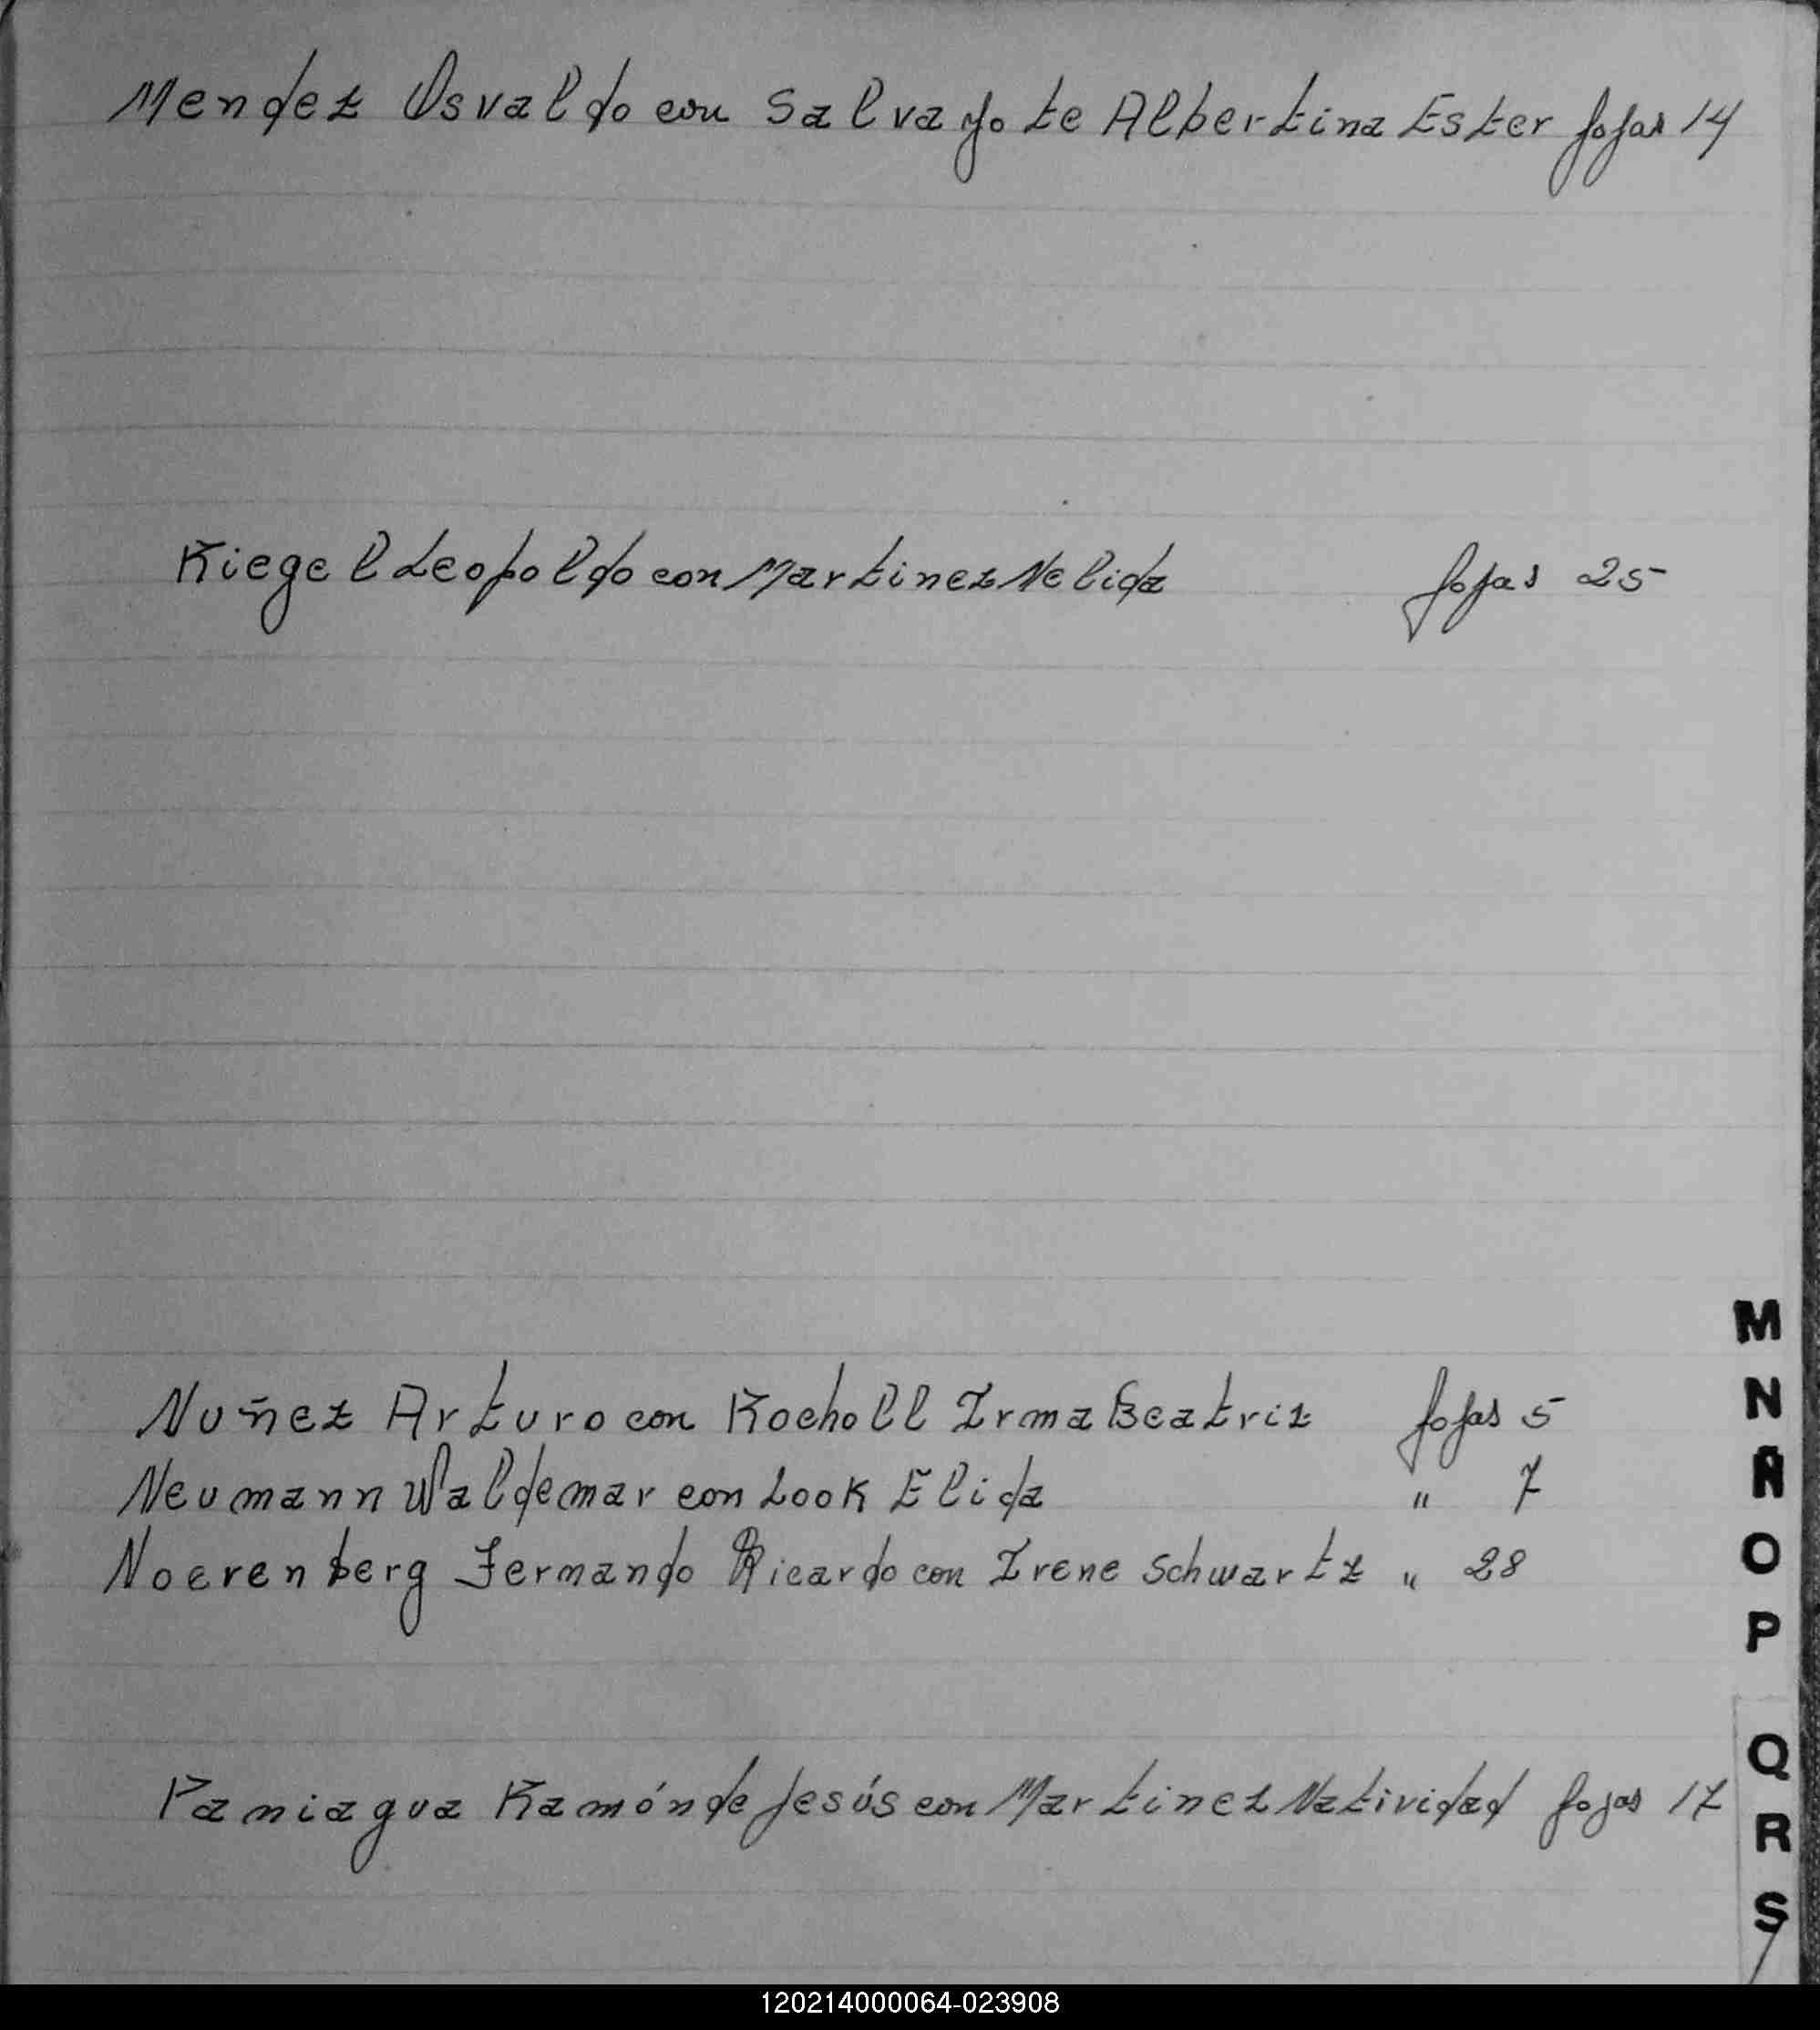 Mendez Osvaldo con Salvagote Albertina Ester fojas 14
Kiegel Leopoldo con Martinez Nelida fojas 25
Nuñez Arturo con Kocholl Irma Beatriz fojas 5
Neumann Waldemar con Look Elida " 7
Noerenberg Fernando Ricardo con Irene Schwartz " 28
Paniagua Ramón de Jesús con Martinez Natividad fojas 17
M
N
Ñ
O
P
Q
R
S
120214000064-023908